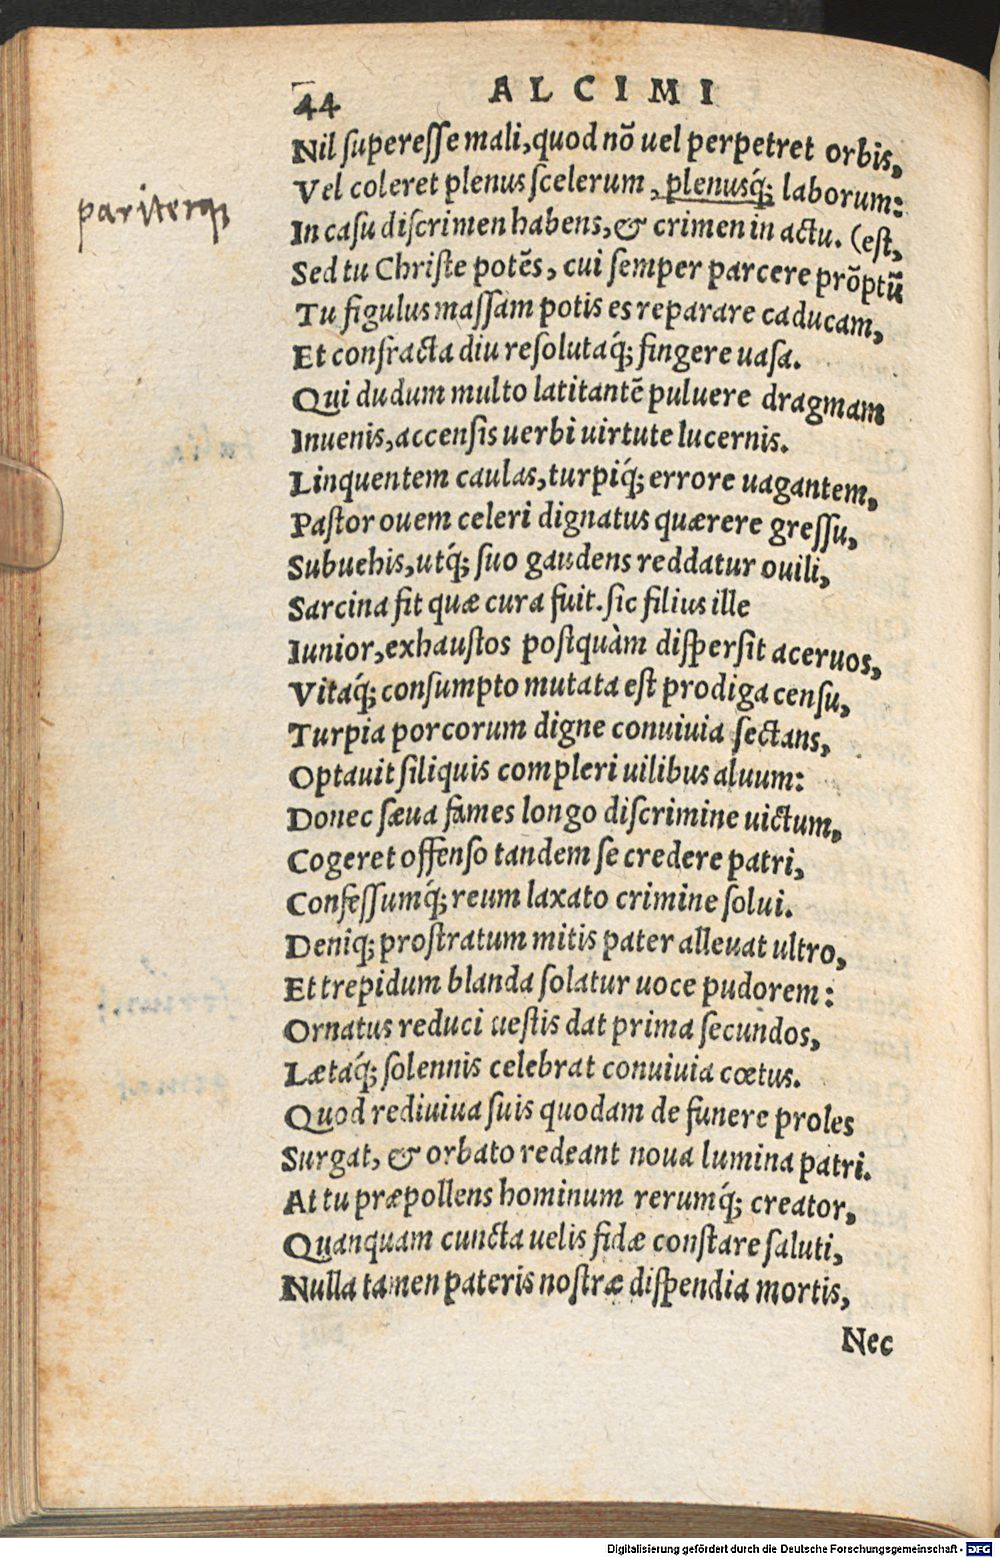 44 ALCIMI
Nil ſupereſſe mali, quod nõ uel perpetret orbis,
Vel coleret plenus ſcelerum, plenusq́; laborum:
pariterq;
In caſu diſcrimen habens, & crimen in actu. (eſt,
Sed tu Chriſte potẽs, cui ſemper parcere prõptũ
Tu figulus maſſam potis es reparare caducam,
Et confracta diu reſolutaq́; fingere uaſa.
Qui dudum multo latitantẽ puluere dragmam
Inuenis, accenſis uerbi uirtute lucernis.
Linquentem caulas, turpiq́; errore uagantem,
Paſtor ouem celeri dignatus quærere greſſu,
Subuehis, utq́; ſuo gaudens reddatur ouili,
Sarcina fit quæ cura fuit. ſic filius ille
Iunior, exhauſtos poſtquàm diſperſit aceruos,
Vitaq́; conſumpto mutata eſt prodiga cenſu,
Turpia porcorum digne conuiuia ſectans,
Optauit ſiliquis compleri uilibus aluum:
Donec ſæua fames longo diſcrimine uictum,
Cogeret offenſo tandem ſe credere patri,
Confeſſumq́; reum laxato crimine ſolui.
Deniq; proſtratum mitis pater alleuat ultro,
Et trepidum blanda ſolatur uoce pudorem:
Ornatus reduci ueſtis dat prima ſecundos,
Lætaq́; ſolennis celebrat conuiuia cœtus.
Quod rediuiua ſuis quodam de funere proles
Surgat, & orbato redeant noua lumina patri.
At tu præpollens hominum rerumq́; creator,
Quanquam cuncta uelis fidæ conſtare ſaluti,
Nulla tamen pateris noſtræ diſpendia mortis,
Nec
Digitalisierung gefördert durch die Deutsche Forschungsgemeinschaft - DFG